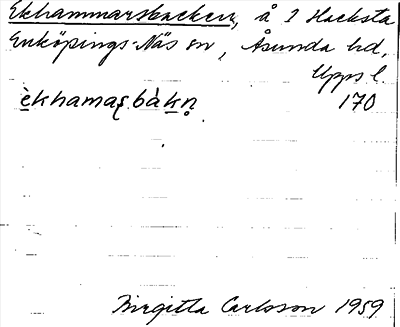 Ekhammarsbacken, å 1 Hacksta
Enköpings-Näs sn, Åsunda hd,
Upps l.
èkhamaʂbàkn̥ 170
Birgitta Carlsson 1959